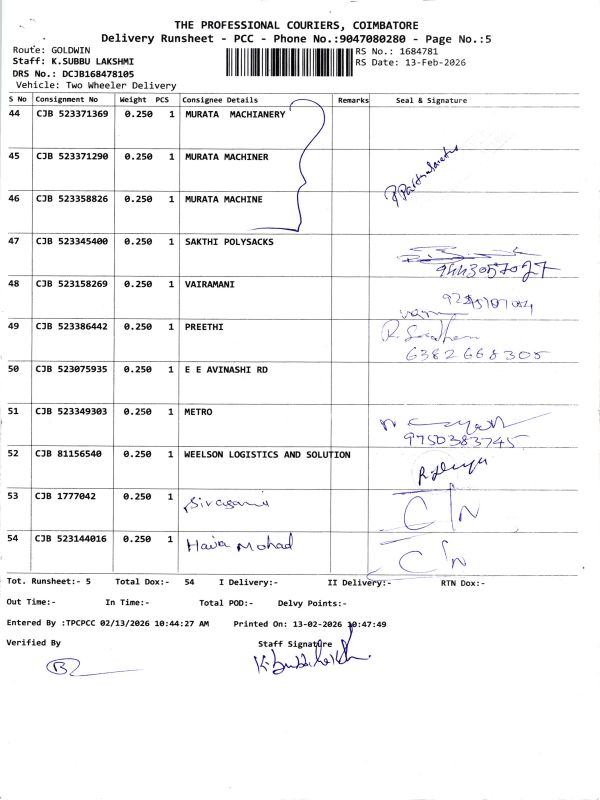 THE PROFESSIONAL COURIERS, COIMBATORE
Delivery Runsheet - PCC - Phone No.:9047080280 - Page No.:5
Route: GOLDWIN
Staff: K.SUBBU LAKSHMI
DRS No.: DCJB168478105
Vehicle: Two Wheeler Delivery
RS No.: 1684781
RS Date: 13-Feb-2026
S No Consignment No Weight PCS Consignee Details Remarks Seal & Signature
44 CJB 523371369 0.250 1 MURATA MACHIANERY
45 CJB 523371290 0.250 1 MURATA MACHINER
46 CJB 523358826 0.250 1 MURATA MACHINE
47 CJB 523345400 0.250 1 SAKTHI POLYSACKS
9443057027
48 CJB 523158269 0.250 1 VAIRAMANI
49 CJB 523386442 0.250 1 PREETHI
6382668305
50 CJB 523075935 0.250 1 E E AVINASHI RD
51 CJB 523349303 0.250 1 METRO
9750383745
52 CJB 81156540 0.250 1 WEELSON LOGISTICS AND SOLUTION
53 CJB 1777042 0.250 1 Sivagami C/N
54 CJB 523144016 0.250 1 Mohad C/N
Tot. Runsheet:- 5 Total Dox:- 54 I Delivery:- II Delivery:- RTN Dox:-
Out Time:- In Time:- Total POD:- Delvy Points:-
Entered By :TPCPCC 02/13/2026 10:44:27 AM Printed On: 13-02-2026 10:47:49
Verified By Staff Signature